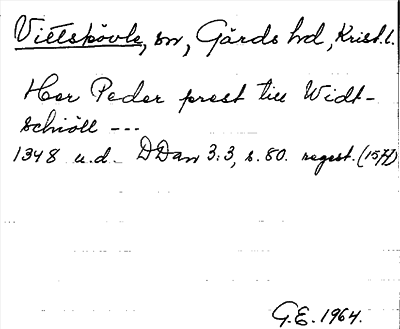 Vittskövle, sn, Gärds hd, Krist.l.
Her Peder prest till Widt-
schiöll ---
1348 u.d. DDan 3:3, s. 80. regest. (1571)
G.E. 1964.